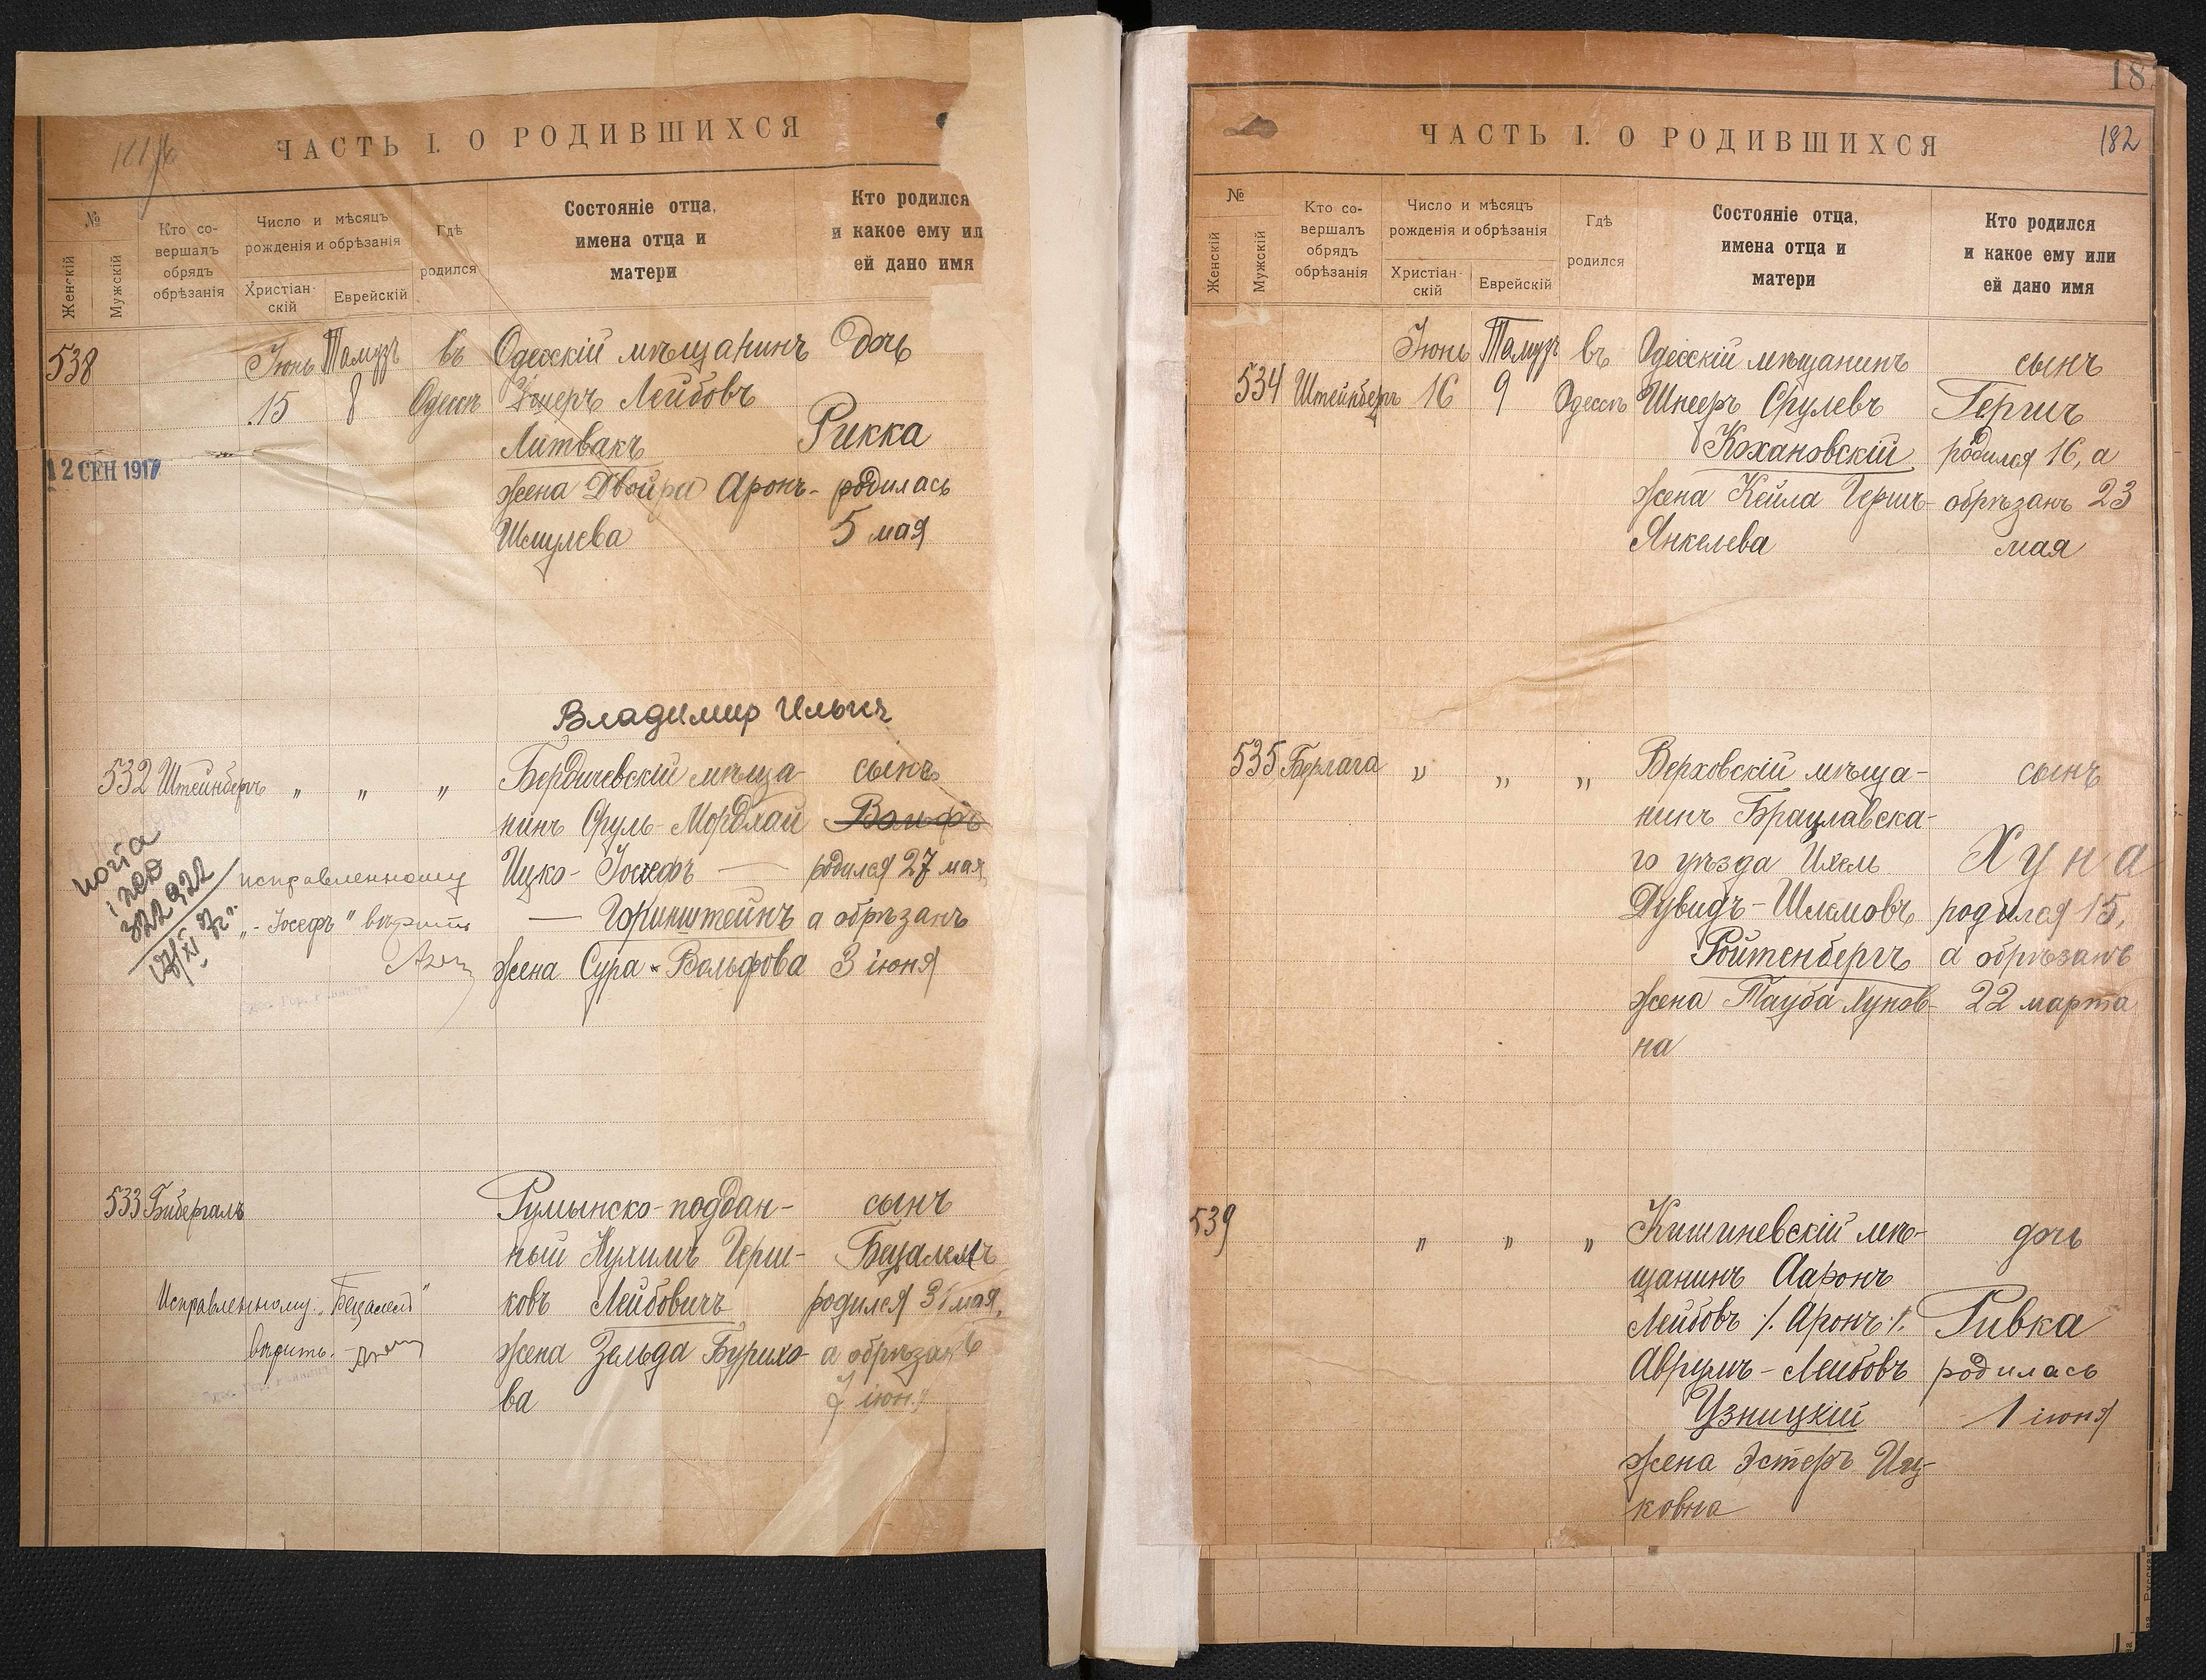 ЧАСТЬ I. О РОДИВШИХСЯ
№
Женскій
Мужскій
Кто со-
вершалъ
обрядъ
обрѣзанія
Число и мѣсяцъ
рожденія и обрѣзанія
Христіан-
скій
Еврейскій
Гдѣ
родился
Состояніе отца,
имена отца и
матери
Кто родился
и какое ему ил
ей дано имя
538
Іюнь
15
Тамузъ
8
въ
Одессѣ
Одесскій мѣщанинъ
Лейбовъ
Литвакъ
жена Двойра Аронъ-
Шмулева
Дочь
Рикка
родилась
5 мая
12 СЕН 1917
Владимир Ильич
532 Штейнбергъ „ „ „
Бердичевскій мѣща-
нинъ Сруль-Мордхай
Ицко-Іосефъ —
— Горинштейнъ
жена Сура-Вольфова
сынъ
Вольфъ
родился 27 мая,
а обрѣзанъ
3 іюня
322922
исправленному
„-Іосефъ" вѣрить
533 Бибергалъ
Румынско-поддан-
ный Нухимъ Герш-
ковъ Лейбовичъ
жена Зельда Бурихо-
ва
сынъ
Бецалелъ
родился 31 мая,
а обрѣзанъ
7 іюня
Исправленному: „Бецалелъ"
вѣрить.
182
ЧАСТЬ I. О РОДИВШИХСЯ
№
Женскій
Мужскій
Кто со-
вершалъ
обрядъ
обрѣзанія
Число и мѣсяцъ
рожденія и обрѣзанія
Христіан-
скій
Еврейскій
Гдѣ
родился
Состояніе отца,
имена отца и
матери
Кто родился
и какое ему или
ей дано имя
534 Штейнбергъ
Іюнь
16
Тамузъ
9
въ
Одессѣ
Одесскій мѣщанинъ
Шнееръ Срулевъ
Кохановскій
жена Кейла Гершъ-
Янкелева
сынъ
Гершъ
родился 16, а
обрѣзанъ 23
мая
535 Берлага „ „ „
Верховскій мѣща-
нинъ Брацлавска-
го уѣзда Ихель
Дувидъ-Шлемовъ
Ройтенбергъ
жена Тауба Хунов-
на
сынъ
Хуна
родился 15,
а обрѣзанъ
22 марта
539 „ „ „
Кишиневскій мѣ-
щанинъ Ааронъ
Лейбовъ /. Аронъ /.
Аврумъ-Лейбовъ
Узницкій
жена Эстеръ Иц-
ковна
дочь
Ривка
родилась
1 іюня